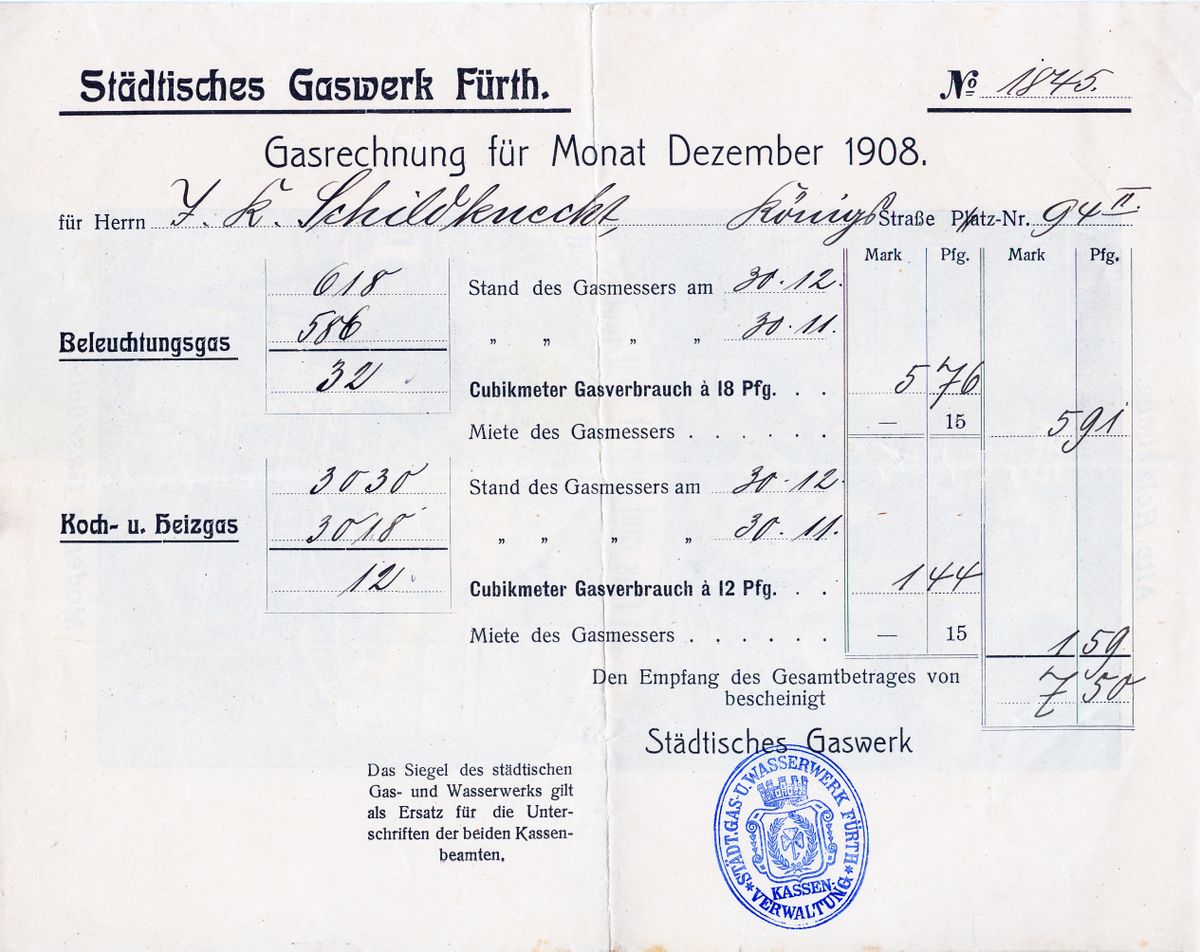 Städtisches Gaswerk Fürth.
No 1845.
Gasrechnung für Monat Dezember 1908.
für Herrn J. K. Schildknecht, Königs Straße Platz-Nr. 94 II.
Mark Pfg. Mark Pfg.
618 Stand des Gasmessers am 30.12.
Beleuchtungsgas 586 „ „ „ „ 30.11.
32 Cubikmeter Gasverbrauch à 18 Pfg. . . 5 76
Miete des Gasmessers . . . . . . — 15 5 91
3030 Stand des Gasmessers am 30.12.
Koch- u. Heizgas 3018 „ „ „ „ 30.11.
12 Cubikmeter Gasverbrauch à 12 Pfg. . . 1 44
Miete des Gasmessers . . . . . . — 15 1 59
Den Empfang des Gesamtbetrages von 7 50
bescheinigt
Städtisches Gaswerk
Das Siegel des städtischen
Gas- und Wasserwerks gilt
als Ersatz für die Unter-
schriften der beiden Kassen-
beamten.
STÄDT. GAS- U. WASSERWERK FÜRTH
KASSEN-
VERWALTUNG